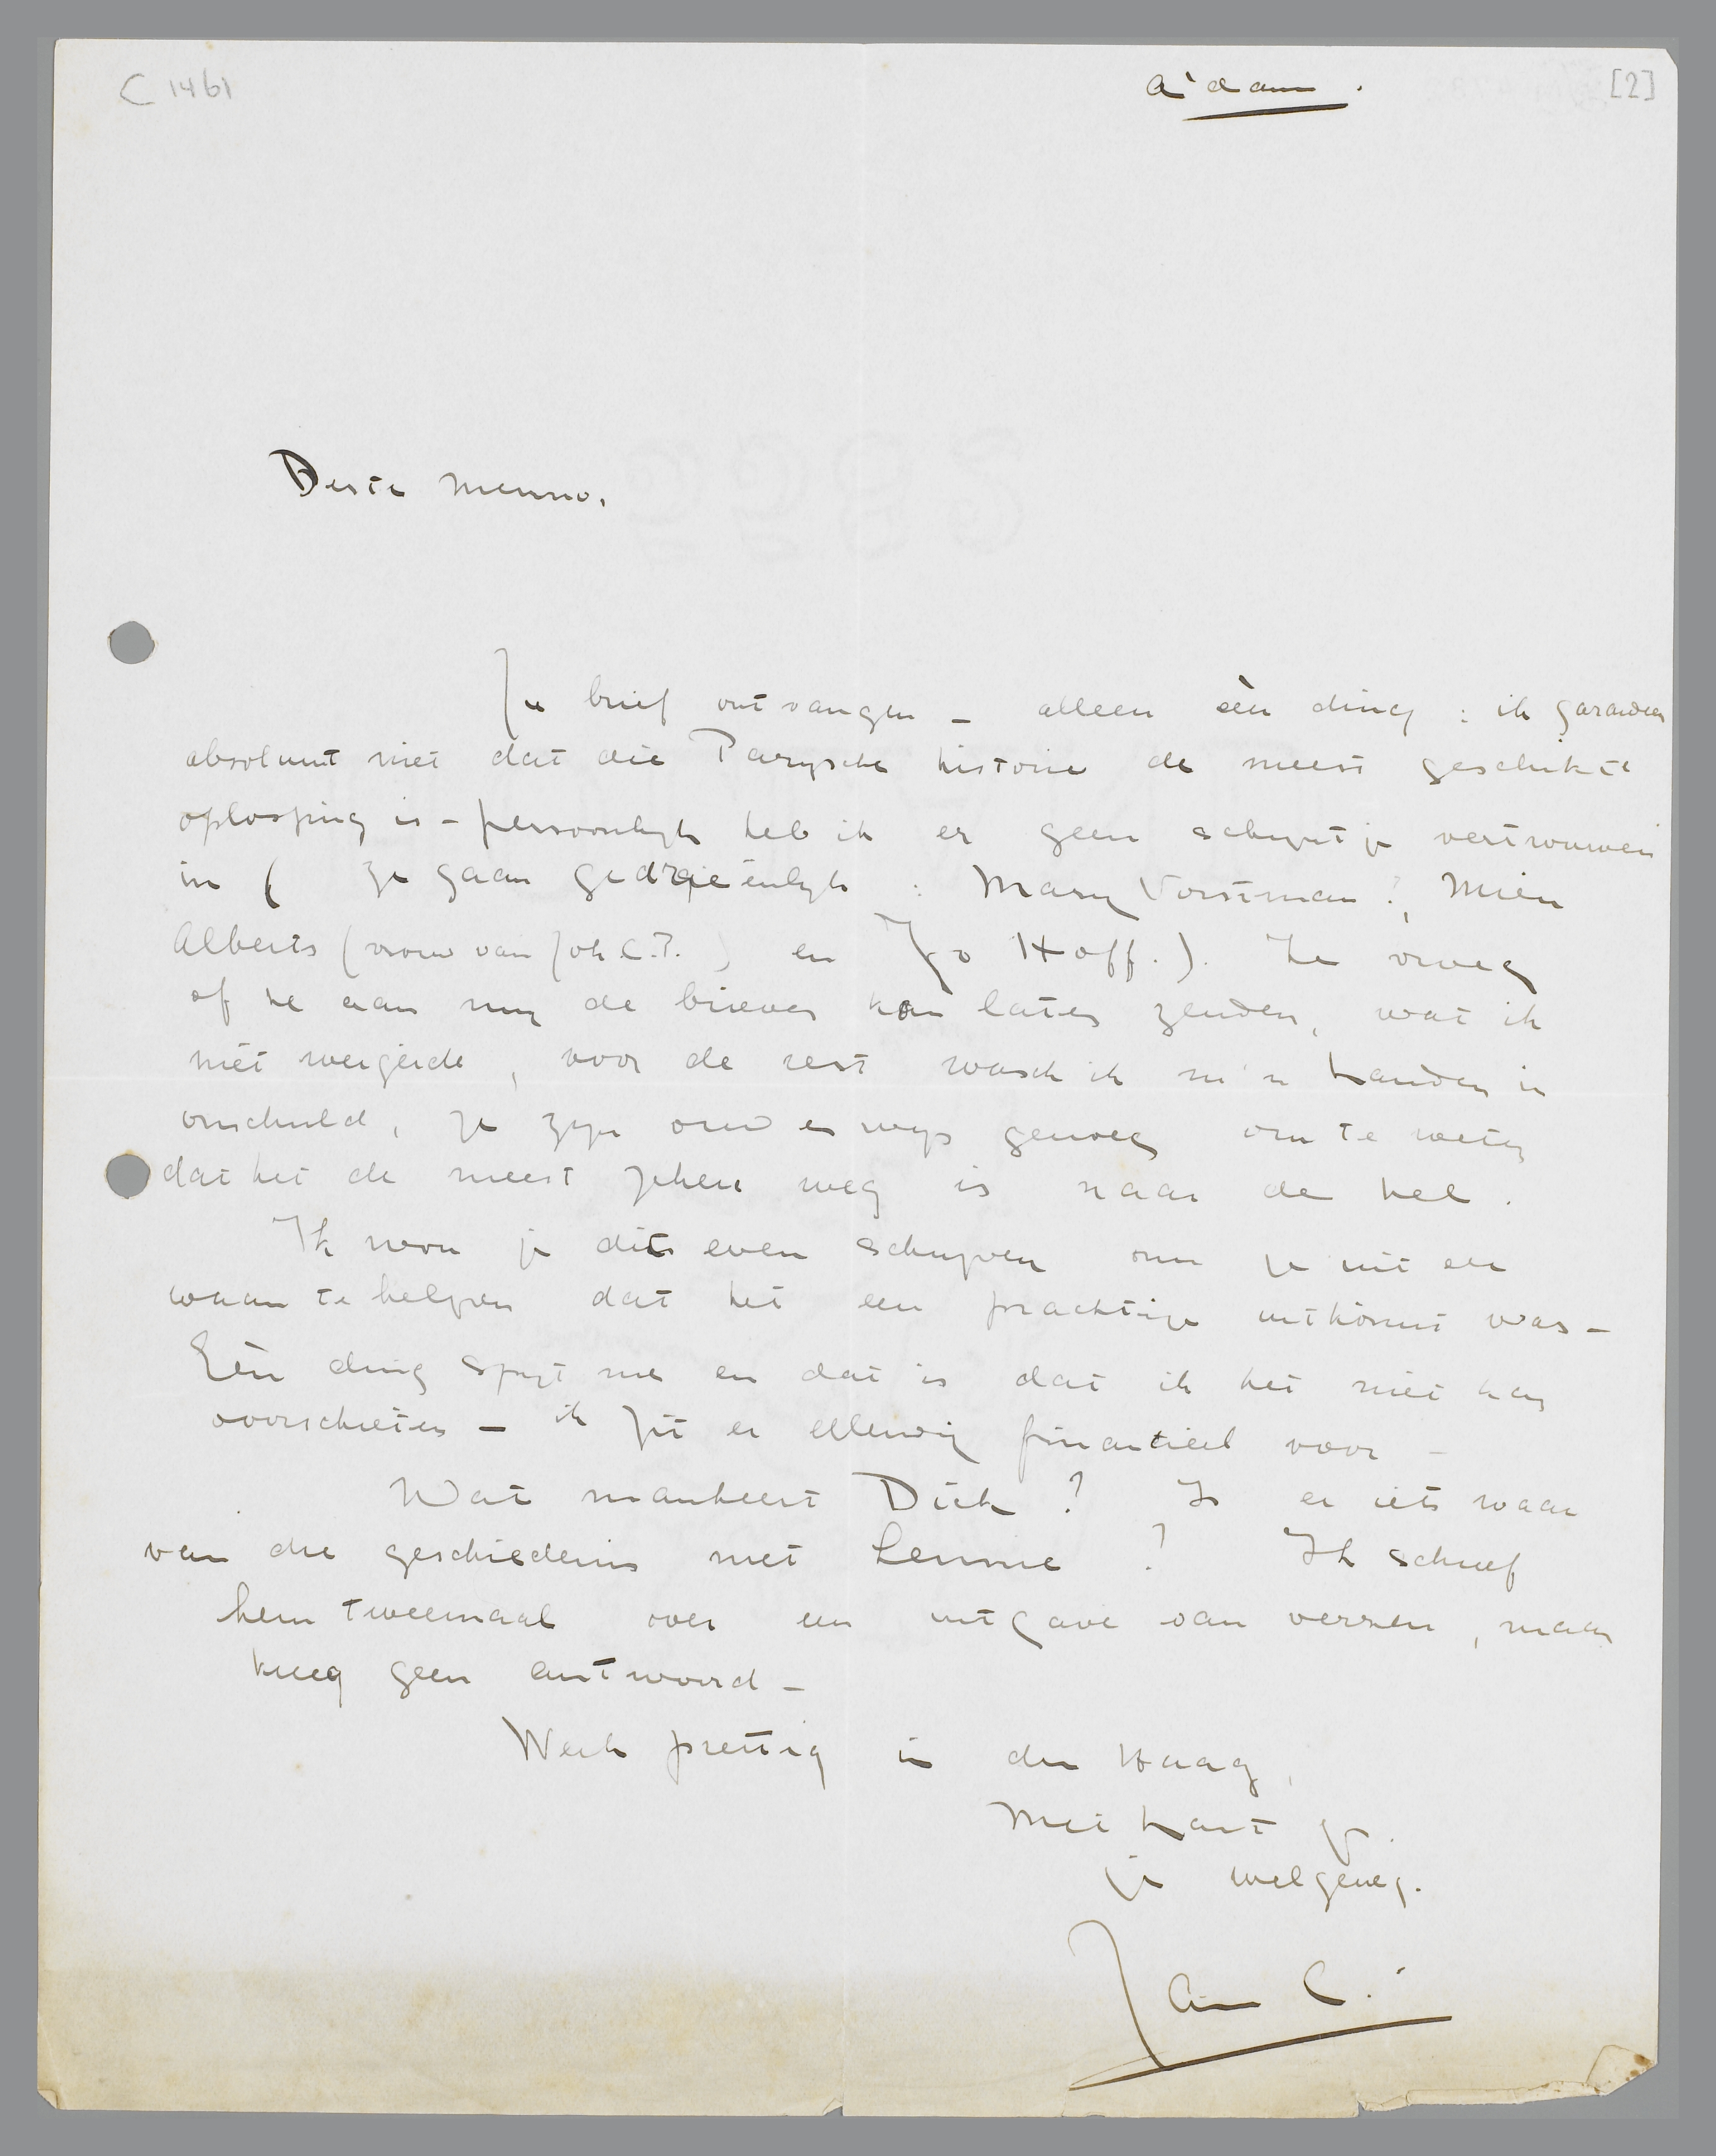 C 1461
A'dam.
[2]
Beste Menno,
Je brief ontvangen – alleen één ding : ik garandeer
absoluut niet dat die Parysche historie de meest geschikte
oplossing is – persoonlyk heb ik er geen schyntje vertrouwen
in ( ze gaan gedrieënlyk : Mary Vorstman?, Mien
Alberts (vrouw van Joh. C.P. ) en Jo Hoff.). Ze vroeg
of ze aan my de brieven kon laten zenden, wat ik
niet weigerde, voor de rest wasch ik m'n handen in
onschuld, ze zyn oud en wys genoeg om te weten
dat het de meest zekere weg is naar de hel.
Ik wou je dit even schryven om je uit een
waan te helpen dat het een prachtige uitkomst was –
Eén ding spyt me en dat is dat ik het niet kan
voorschieten – ik zit er ellendig financieel voor –
Wat mankeert Dick ? Is er iets waar
van die geschiedenis met Lennie ? Ik schreef
hem tweemaal over een uitgave van verzen, maar
kreeg geen antwoord –
Werk prettig in den Haag,
Met hart. gr.
je welgeneg.
Jan C.